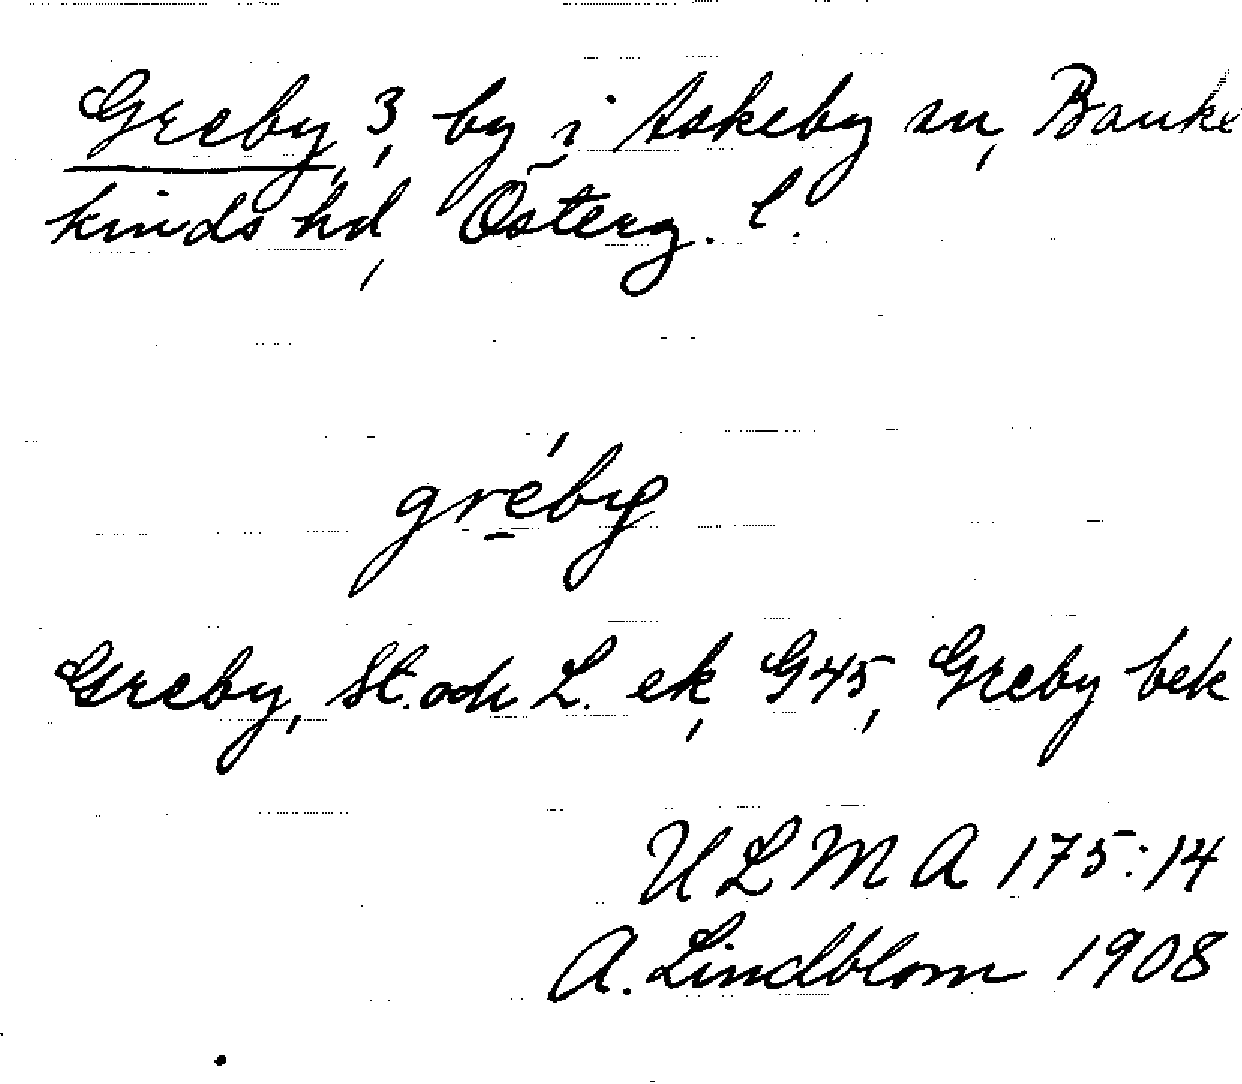 Greby, 3, by i Askeby sn, Banke
kinds hd, Österg. l.
gréby
Greby, St. och L. ek, G45, Greby bek
ULMA 175:14
A. Lindblom 1908